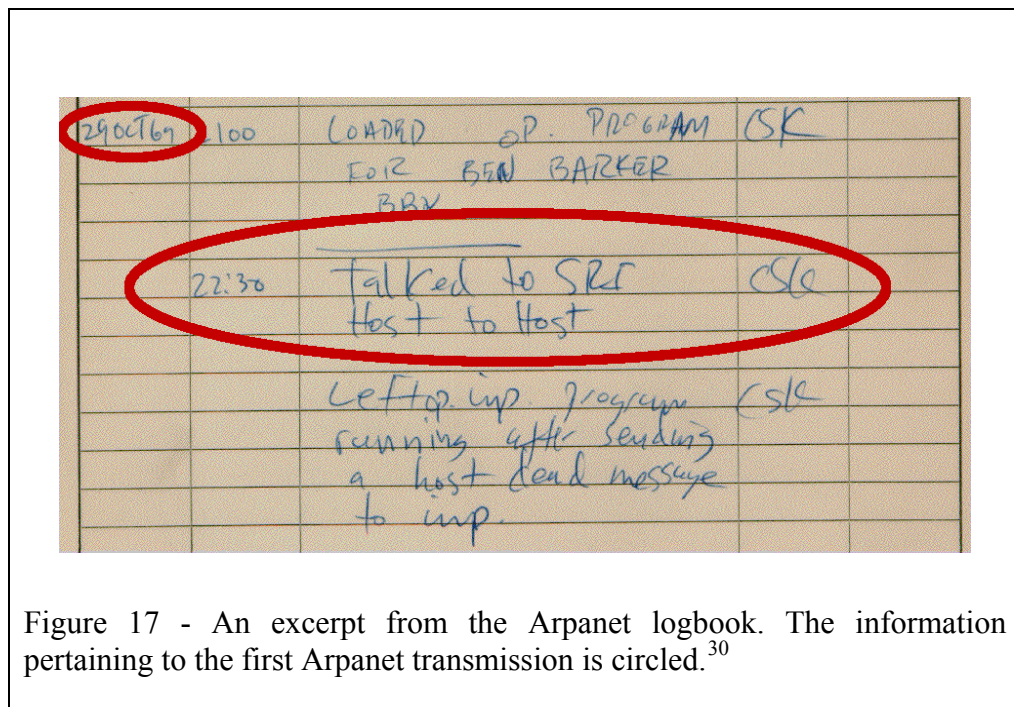 29OCT69 2100 LOADED OP. PROGRAM CSK
FOR BEN BARKER
BBN
22:30 Talked to SRI CSK
Host to Host
Left op. imp. program CSK
running after sending
a host dead message
to imp.
Figure 17 - An excerpt from the Arpanet logbook. The information
pertaining to the first Arpanet transmission is circled.30